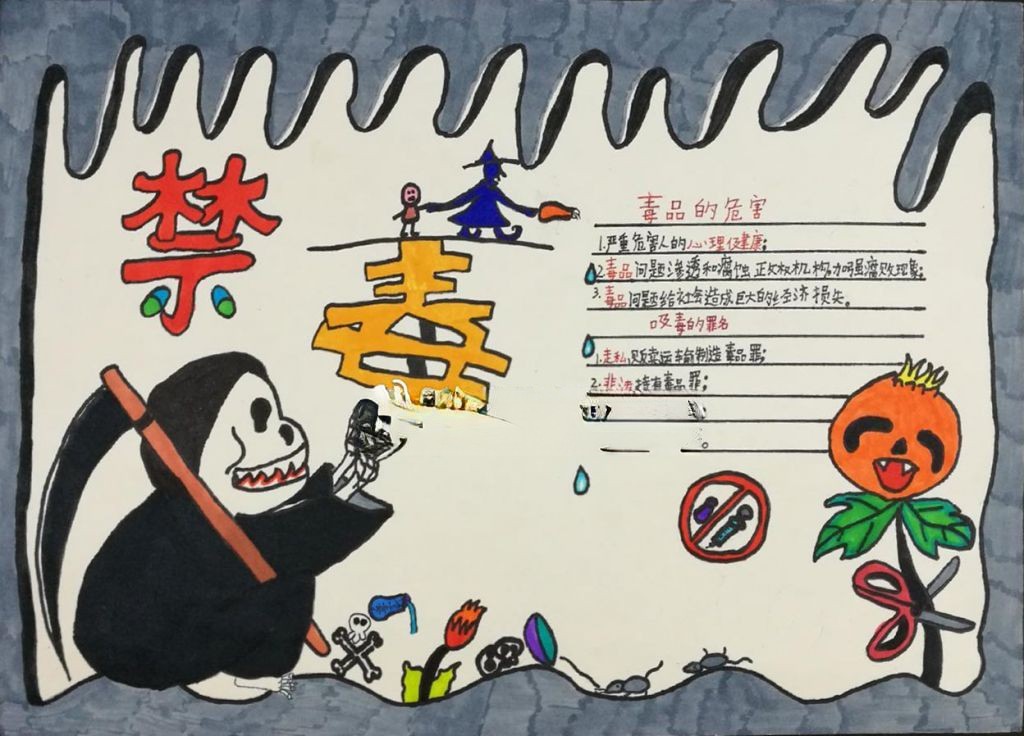 禁
毒
毒品的危害
1.严重危害人的心理健康;
2.毒品问题渗透和腐蚀正政权机构加强腐败现象;
3.毒品问题给社会造成巨大的经济损失。
吸毒的罪名
1.走私贩卖运输制造毒品罪;
2.非法持有毒品罪;